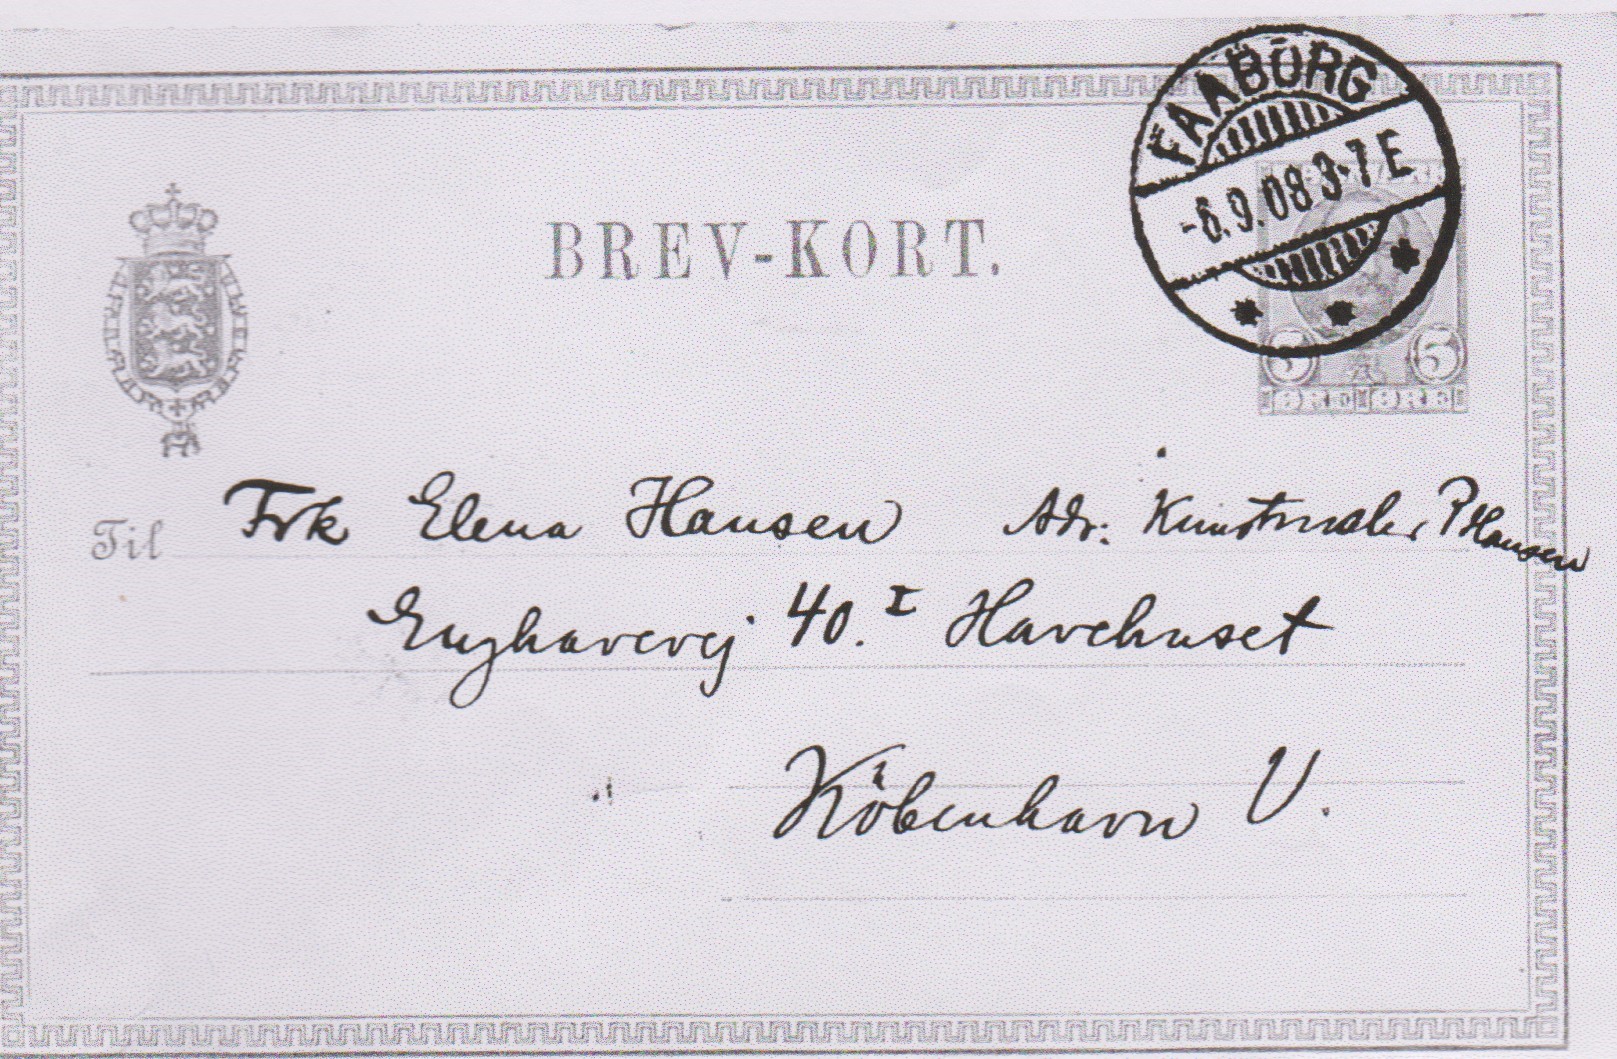 FAABORG
-6.9.08 3-7 E
BREV-KORT.
5 5
ØRE ØRE
Til Frk Elena Hansen Adr: Kunstmaler P Hansen
Enghavevej 40. I Havehuset
Köbenhavn V.